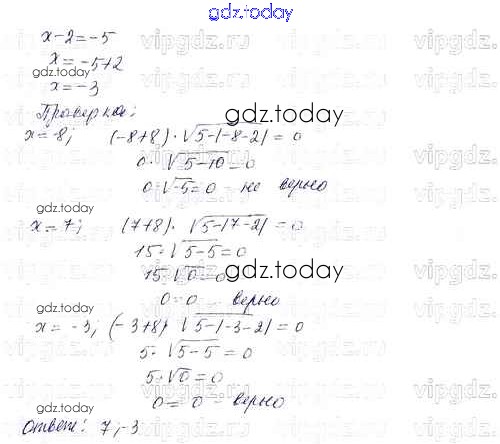 gdz.today
x-2=-5
x=-5+2
x=-3
Проверка:
x=-8; (-8+8)·√5-|-8-2| = 0
0·√5-10=0
0·√-5=0 - не верно
x=7; (7+8)·√5-|7-2| = 0
15·√5-5=0
15·√0=0
0=0 - верно
x=-3; (-3+8)·√5-|-3-2| = 0
5·√5-5=0
5·√0=0
0=0 - верно
Ответ: 7; -3
gdz.today
gdz.today
gdz.today
gdz.today
gdz.today
gdz.today
gdz.today
gdz.today
gdz.today
vipgdz.ru
vipgdz.ru
vipgdz.ru
vipgdz.ru